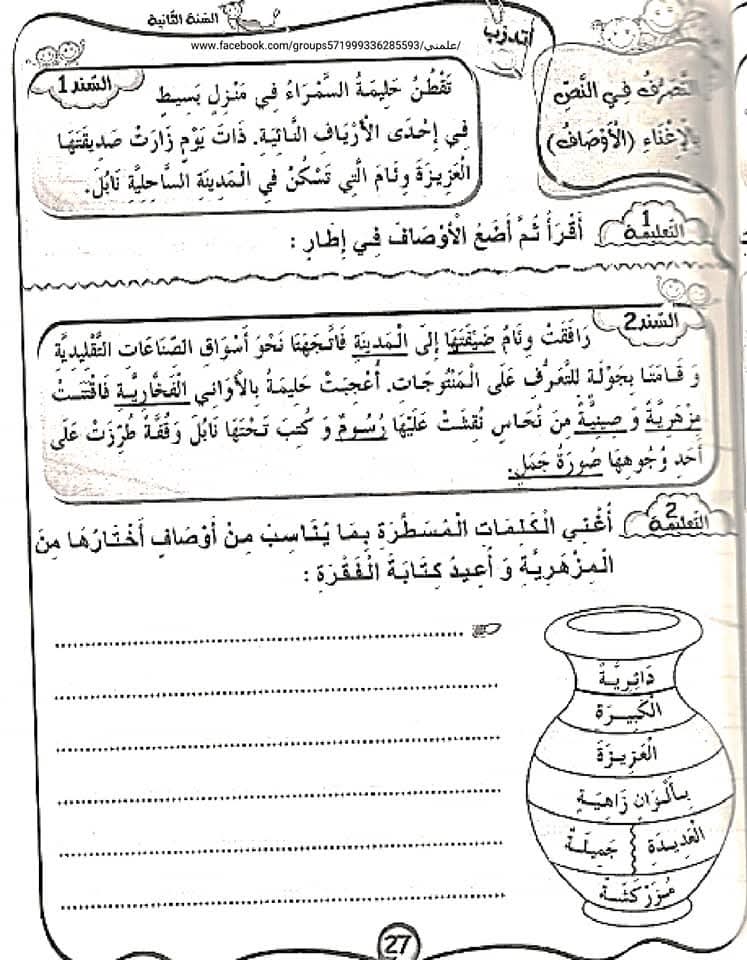 السّنة الثّانية
www.facebook.com/groups571999336285593/علمني/
أتدرّب
التَّصَرُّفُ فِي النَّصِّ
بِالإِغْنَاءِ (الْأَوْصَافُ)
السّند1
تَقْطُنُ حَلِيمَةُ السَّمْرَاءُ فِي مَنْزِلٍ بَسِيطٍ
فِي إِحْدَى الْأَرْيَافِ النَّائِيَةِ. ذَاتَ يَوْمٍ زَارَتْ صَدِيقَتَهَا
الْعَزِيزَةَ وِئَامَ الَّتِي تَسْكُنُ فِي الْمَدِينَةِ السَّاحِلِيَّةِ نَابُلَ.
التّعليمة 1
أَقْرَأُ ثُمَّ أَضَعُ الْأَوْصَافَ فِي إِطَارٍ :
السّند2
رَافَقَتْ وِئَامُ ضَيْفَتَهَا إِلَى الْمَدِينَةِ فَاتَّجَهَتَا نَحْوَ أَسْوَاقِ الصِّنَاعَاتِ التَّقْلِيدِيَّةِ
وَ قَامَتَا بِجَوْلَةٍ لِلتَّعَرُّفِ عَلَى الْمَنْتُوجَاتِ. أُعْجِبَتْ حَلِيمَةُ بِالْأَوَانِي الْفَخَّارِيَّةِ فَاقْتَنَتْ
مِزْهَرِيَّةً وَ صِينِيَّةً مِنْ نُحَاسٍ نُقِشَتْ عَلَيْهَا رُسُومٌ وَ كُتِبَ تَحْتَهَا نَابُلَ وَقُفَّةً طُرِّزَتْ عَلَى
أَحَدِ وُجُوهِهَا صُورَةُ جَمَلٍ.
التّعليمة 2
أُغْنِي الْكَلِمَاتِ الْمُسَطَّرَةِ بِمَا يُنَاسِبُ مِنْ أَوْصَافٍ أَخْتَارُهَا مِنَ
الْمِزْهَرِيَّةِ وَ أُعِيدُ كِتَابَةَ الْفَقْرَةِ :
دَائِرِيَّةٌ
الْكَبِيرَةِ
الْعَزِيزَةَ
بِأَلْوَانٍ زَاهِيَةٍ
الْعَدِيدَةَ جَمِيلَةٌ
مُزَرْكَشَةً
27